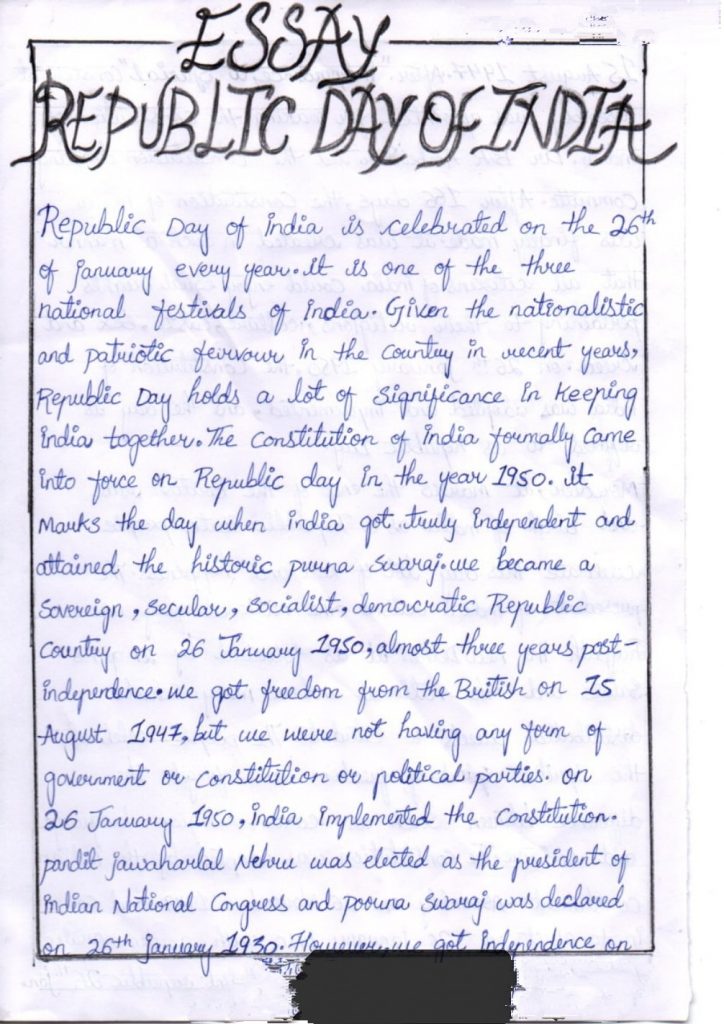 ESSAY
REPUBLIC DAY OF INDIA
Republic Day of India is celebrated on the 26th
of january every year. it is one of the three
national festivals of india. Given the nationalistic
and patriotic fervour in the country in recent years,
Republic Day holds a lot of significance in keeping
india together. The constitution of India formally came
into force on Republic day in the year 1950. it
marks the day when india got truly independent and
attained the historic purna swaraj. we became a
sovereign, secular, socialist, democratic Republic
country on 26 January 1950, almost three years post-
independence. we got freedom from the British on 15
August 1947, but we were not having any form of
government or constitution or political parties. on
26 January 1950, india implemented the constitution.
pandit jawaharlal Nehru was elected as the president of
indian National Congress and poorna swaraj was declared
on 26th january 1930. However, we got independence on